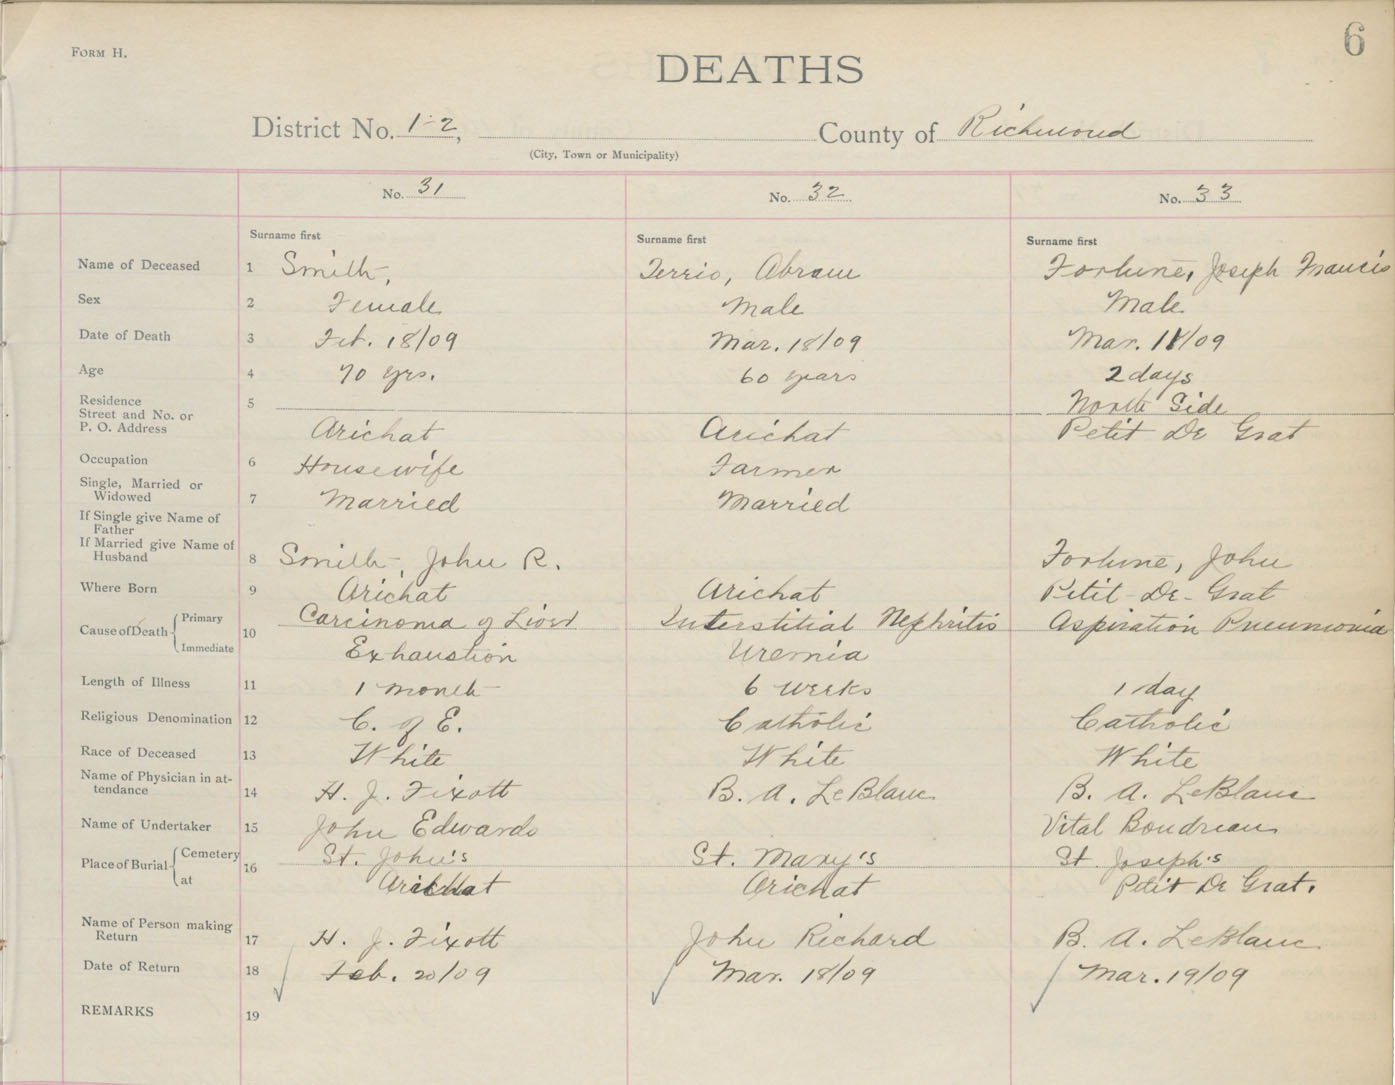 6
FORM H.
DEATHS
District No. 1-2, County of Richmond
(City, Town or Municipality)
No. 31 No. 32 No. 33
Surname first Surname first Surname first
Name of Deceased 1 Smith, Terrio, Abram Fortune, Joseph Francis
Sex 2 Female Male Male
Date of Death 3 Feb. 18/09 Mar. 18/09 Mar. /09
Age 4 70 yrs. 60 years 2 days
Residence 5 North Side
Street and No. or
P. O. Address Arichat Arichat Petit De Grat
Occupation 6 Housewife Farmer
Single, Married or
Widowed 7 Married Married
If Single give Name of
Father
If Married give Name of
Husband 8 Smith, John R. Fortune, John
Where Born 9 Arichat Arichat Petit-De-Grat
Cause of Death Primary 10 Carcinoma of Liver Interstitial Nephritis Aspiration Pneumonia
Immediate Exhaustion Uremia
Length of Illness 11 1 month 6 weeks 1 day
Religious Denomination 12 C. of E. Catholic Catholic
Race of Deceased 13 White White White
Name of Physician in at-
tendance 14 H. J. Fixott B. A. LeBlanc B. A. LeBlanc
Name of Undertaker 15 John Edwards Vital Boudreau
Place of Burial Cemetery 16 St. John's St. Mary's St. Joseph's
at Arichat Arichat Petit De Grat.
Name of Person making
Return 17 H. J. Fixott John Richard B. A. LeBlanc
Date of Return 18 Feb. 20/09 Mar. 18/09 Mar. 19/09
REMARKS 19